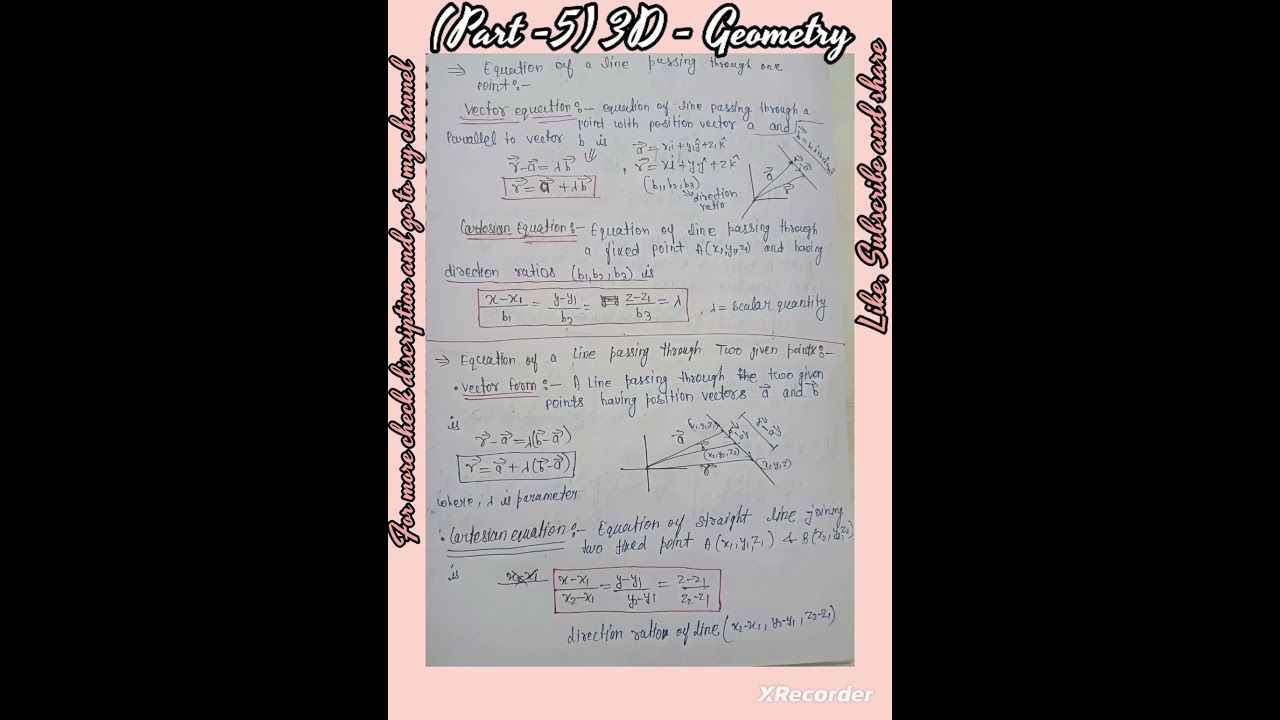 (Part -5) 3D - Geometry
For more check discription and go to my channel
Like, Subscribe and share
⇒ Equation of a line passing through one
point:-
Vector equation:- equation of line passing through a
point with position vector a and
Parallel to vector b is
r⃗-a⃗=λb⃗
r⃗= a⃗ +λb⃗
a⃗ = x₁i+y₁ĵ+z₁k̂
, r⃗ = xî+yĵ+zk̂
(b₁,b₂,b₃)
direction
ratio
a⃗
r⃗
Cartesian Equation:- Equation of line passing through
a fixed point A(x₁,y₁,z₁) and having
direction ratios (b₁,b₂,b₃) is
(x-x₁)/b₁ = (y-y₁)/b₂ = (z-z₁)/b₃ = λ , λ= scalar quantity
⇒ Equation of a Line passing through Two given points:-
• vector form:- A Line passing through the two given
points having position vectors a⃗ and b⃗
is
r⃗-a⃗=λ(b⃗-a⃗)
r⃗=a⃗+λ(b⃗-a⃗)
(x₁,y₁,z₁)
a⃗
b⃗
(x₂,y₂,z₂)
r⃗
(x,y,z)
where, λ is parameter
• Cartesian equation:- Equation of straight line joining
two fixed point A(x₁,y₁,z₁) & B(x₂,y₂,z₂)
is (x-x₁)/(x₂-x₁) = (y-y₁)/(y₂-y₁) = (z-z₁)/(z₂-z₁)
direction ration of line (x₂-x₁, y₂-y₁, z₂-z₁)
XRecorder